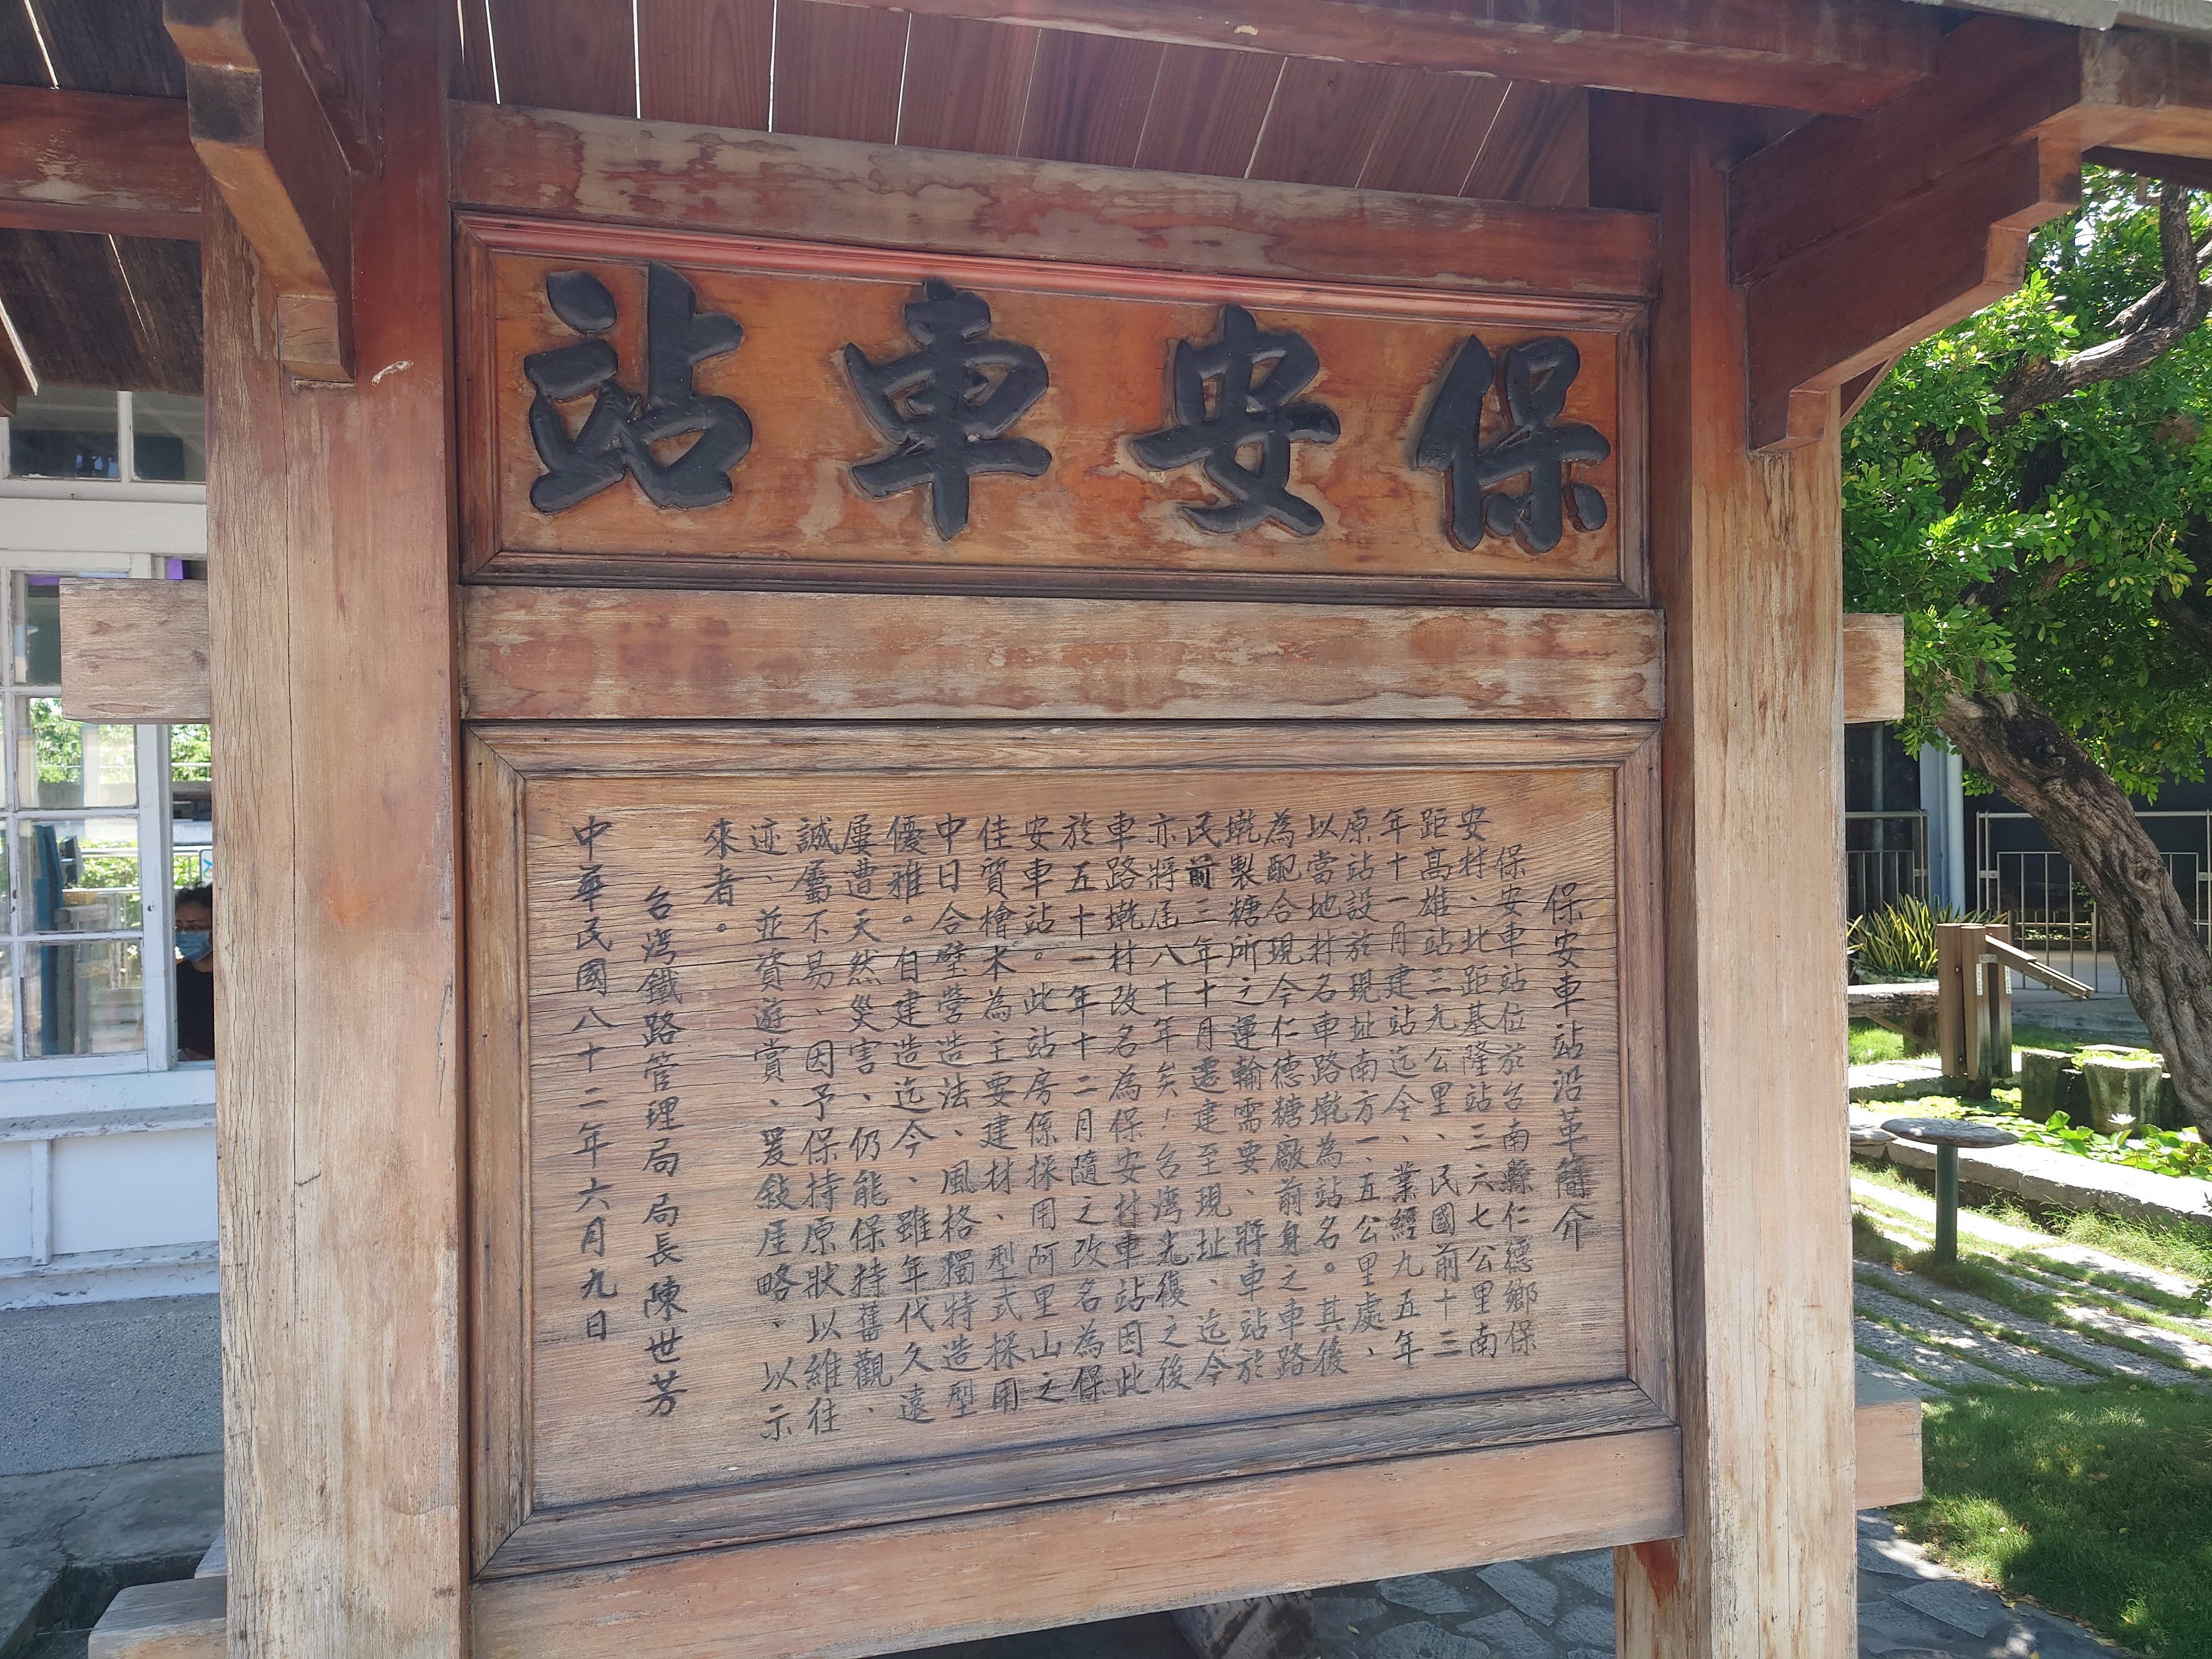 保安車站
保安車站沿革簡介
保安車站位於台南縣仁德鄉保
安村、北距基隆站三六七公里南
距高雄站三九公里、民國前十三
年十一月建站迄今、業經九五年
原站設於現址南方一、五公里處、
以當地村名車路墘為站名。其後
為配合現今仁德糖廠前身之車路
墘製糖所之運輸需要、將車站於
民前三年十月遷建至現址、迄今
亦將屆八十年矣！台灣光復之後
車路墘村改名為保安村車站因此
於五十一年十二月隨之改名為保
安車站。此站房係採用阿里山之
佳質檜木為主要建材、型式採用
中日合壁營造法、風格獨特造型
優雅。自建造迄今、雖年代久遠
屢遭天然災害、仍能保持舊觀、
誠屬不易、因予保持原狀以維往
迹、並資遊賞、爰敍厓略、以示
來者。
台灣鐵路管理局 局長 陳世芳
中華民國八十二年六月九日